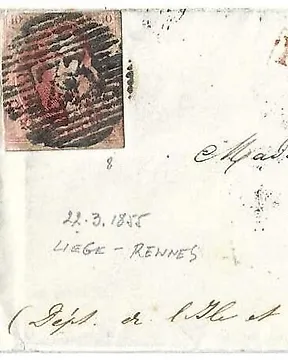 40 40
8
Mad
22.3.1855
LIEGE - RENNES
(Dépt. de l'Isle et